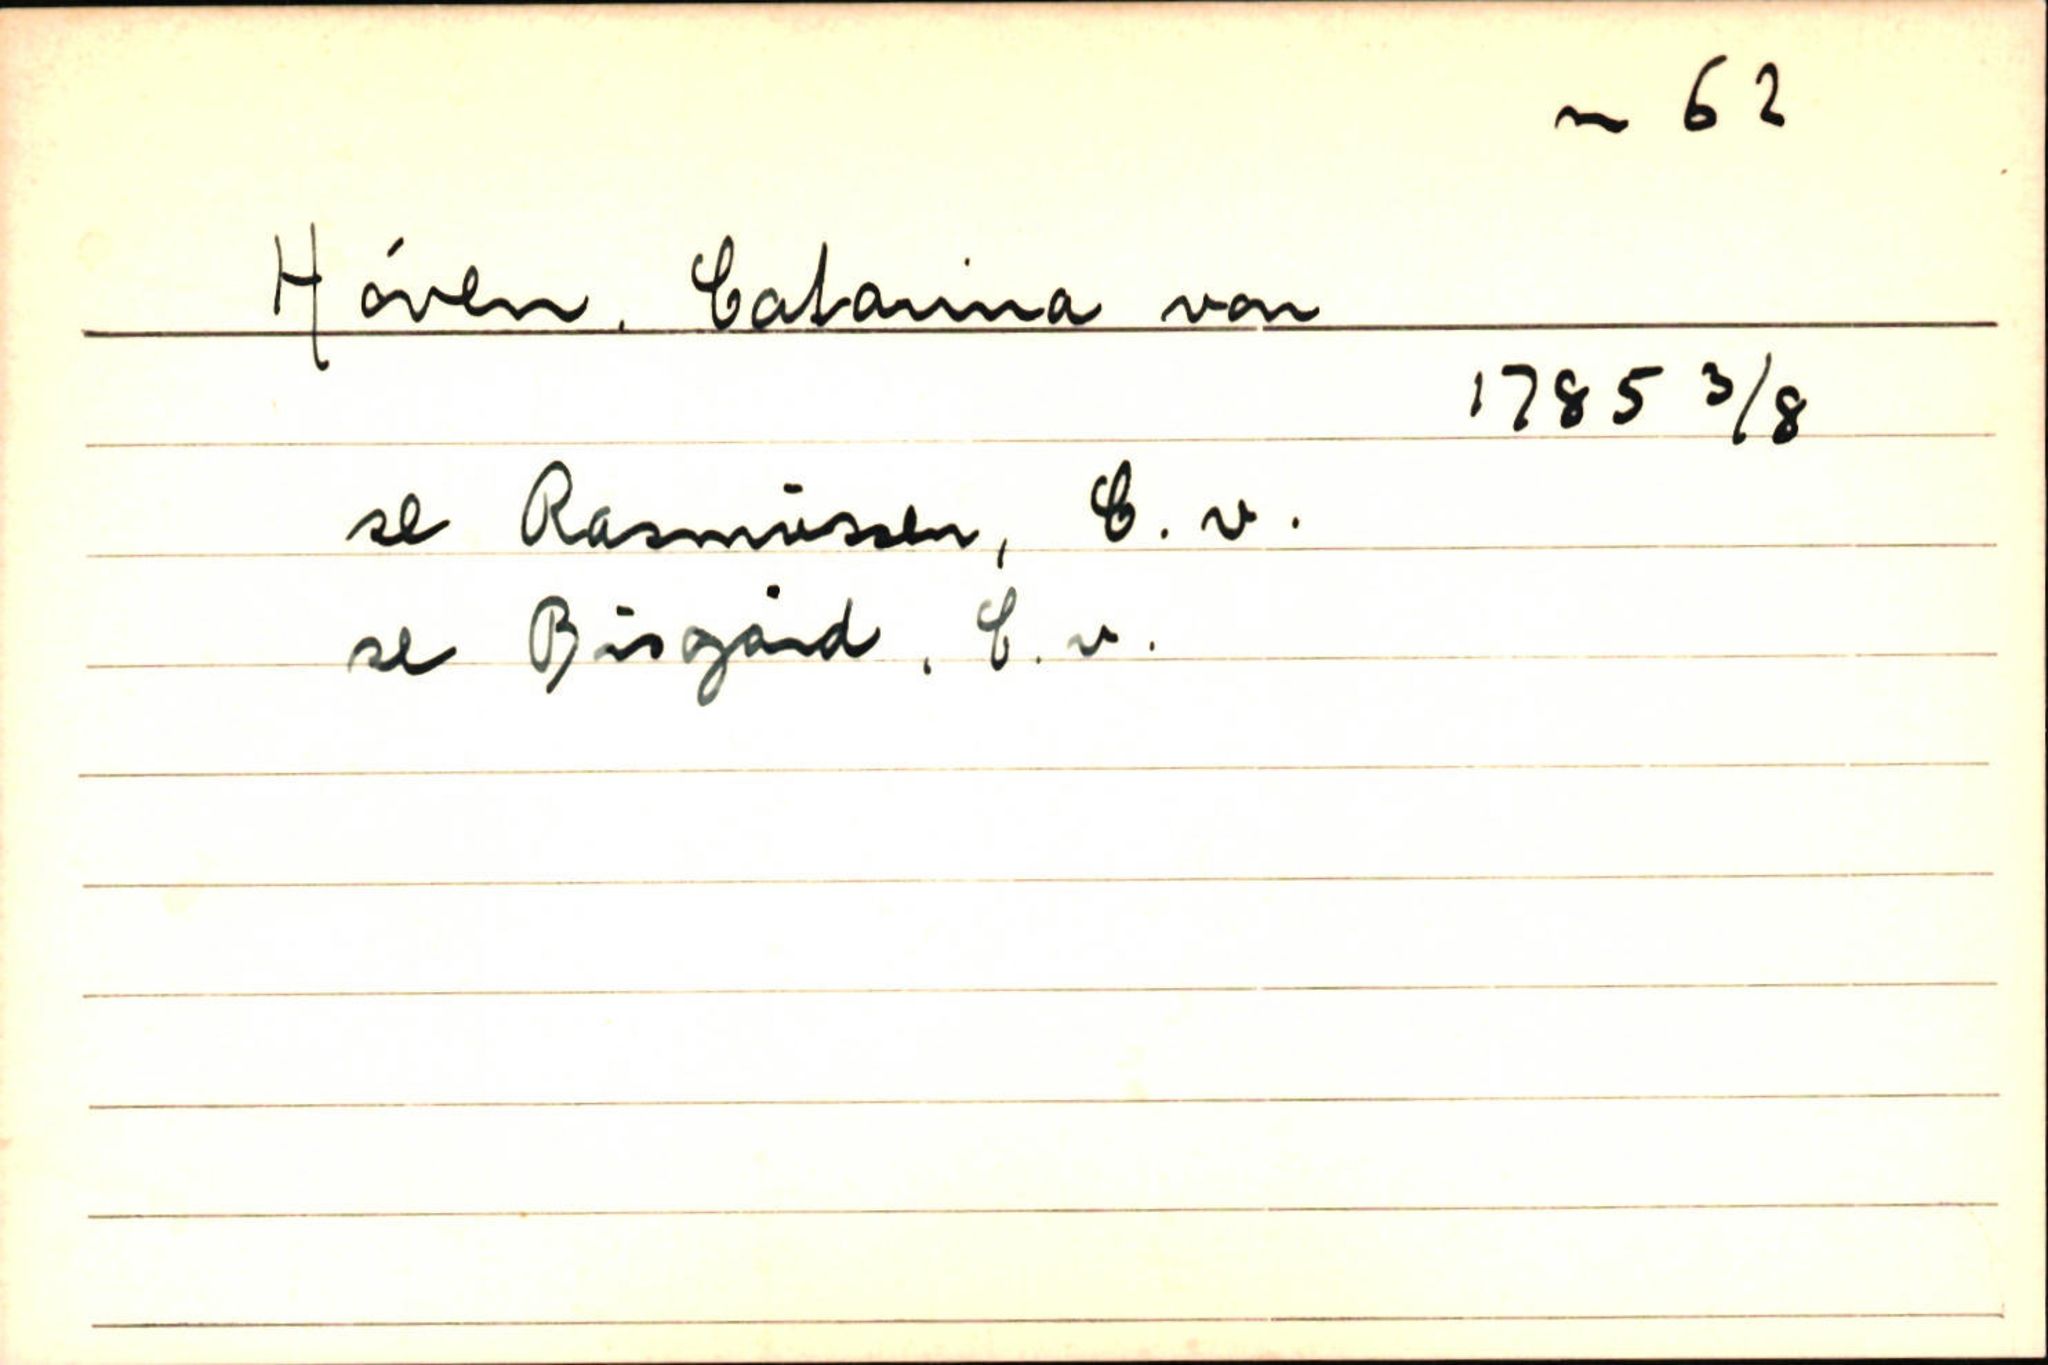 ~ 62
Höven, Catarina von
1785 3/8
se Rasmussen, C. v.
se Bisgård, C. v.